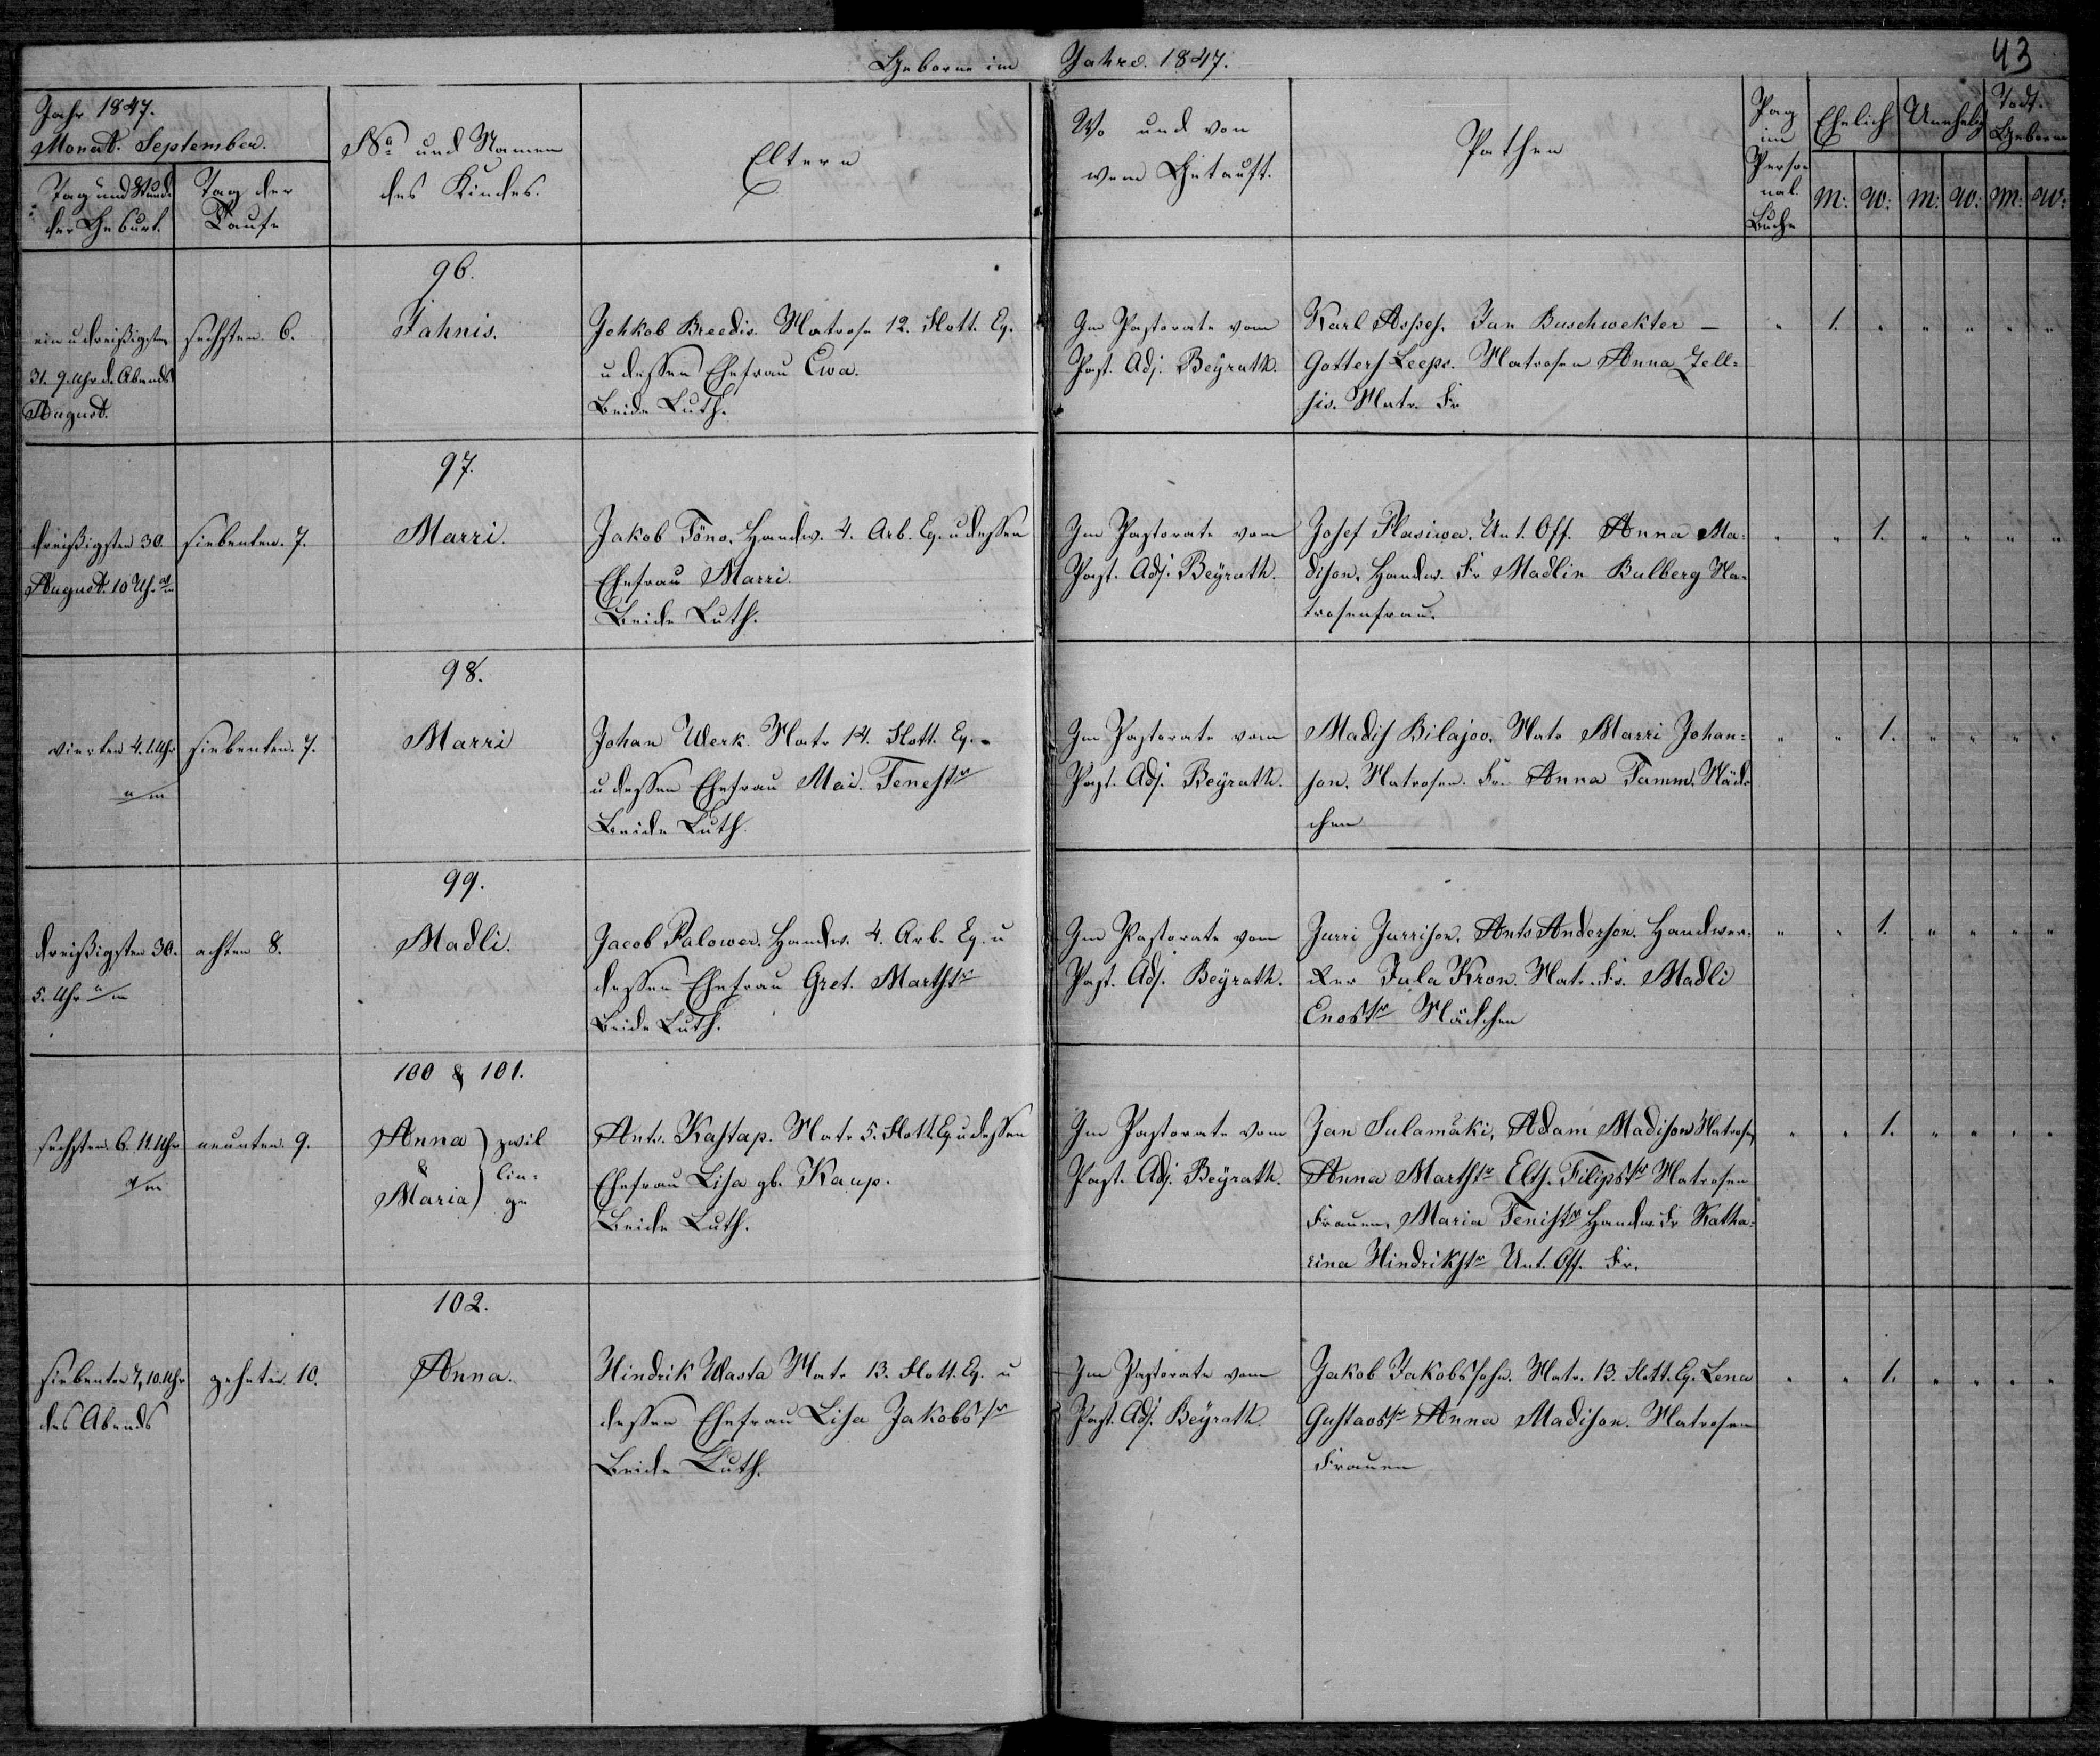 Geborne im Jahre. 1847.
43
Jahr 1847.
Monat. September.
Tag und Stunde
der Geburt.
Tag der
Taufe
No und Namen
des Kindes.
Eltern
Wo und von
wem Getauft.
Pathen
Pag
im
Perso-
nal.
Buche
Ehelich
Unehelig
Todt.
Geboren
M: W: M: W: M: W:
96.
ein u dreißigsten
31. 9. Uhr d. Abends
August.
sechsten 6.
Jahnis.
Jehkob Breedis. Matrose 12. Flott. Eq.
u dessen Ehefrau Ewa.
Beide Luth.
Im Pastorate vom
Past. Adj. Beÿrath.
Karl Asses. Jan Buschwekter –
Gotters Leeps. Matrosen Anna Zell=
sis. Matr. Fr
" 1. " " " " "
97.
dreißigsten 30.
August. 10 Uhr
siebenten. 7.
Marri.
Jakob Töno. Handw. 4. Arb. Eq. u dessen
Ehefrau Marri.
Beide Luth.
Im Pastorate vom
Past. Adj. Beÿrath.
Josef Plasiwa. Unt. Off. Anna Ma-
dison. Handw. Fr Madlin Balberg Ma-
trosenfrau.
" " 1. " " " "
98.
vierten 4. 1. Uhr
a/m
siebenten. 7.
Marri
Johan Werk. Matr 14. Flott. Eq. -
u dessen Ehefrau Mai. Tenestr
Beide Luth.
Im Pastorate vom
Past. Adj. Beÿrath.
Madis Bilajoo. Matr Marri Johan=
son. Matrosen. Fr. Anna Tamm. Mäd-
chen
" " 1. " " " "
99.
dreißigsten 30.
5. Uhr a/m
achten 8.
Madli.
Jacob Palower. Handw. 4. Arb. Eq. u
dessen Ehefrau Gret. Marthtr
Beide Luth.
Im Pastorate vom
Past. Adj. Beÿrath.
Jurri Jurrison. Ants Anderson. Handwer-
ker Jula Kron. Matr. Fr. Madli
Enostr Mädchen
" " 1. " " " "
100 & 101.
sechsten 6. 11. Uhr
neunten. 9.
Anna
&
Maria
zwil
lin=
ge
Ants. Kastap. Matr 5. Flott. Eq u dessen
Ehefrau Lisa gb. Kaup.
Beide Luth.
Im Pastorate vom
Past. Adj. Beÿrath.
Jan Sulamäki, Adam Madison Matrosen
Anna Marthtr Elts. Filipstr Matrosen
Frauen, Maria Tenistr Handw. Fr Katha-
rina Hindrikstr Unt. Off. Fr.
" " 1. " " " "
102.
siebenten 7, 10. Uhr
des Abends
zehnten 10.
Anna.
Hindrik Wasta Matr 13. Flott. Eq. u
dessen Ehefrau Lisa Jakobstr
Beide Luth.
Im Pastorate vom
Past. Adj. Beÿrath.
Jakob Jakobssohn. Matr. 13. Flott. Eq. Lena
Gustavstr Anna Madison. Matrosen
Frauen
" " 1. " " " "